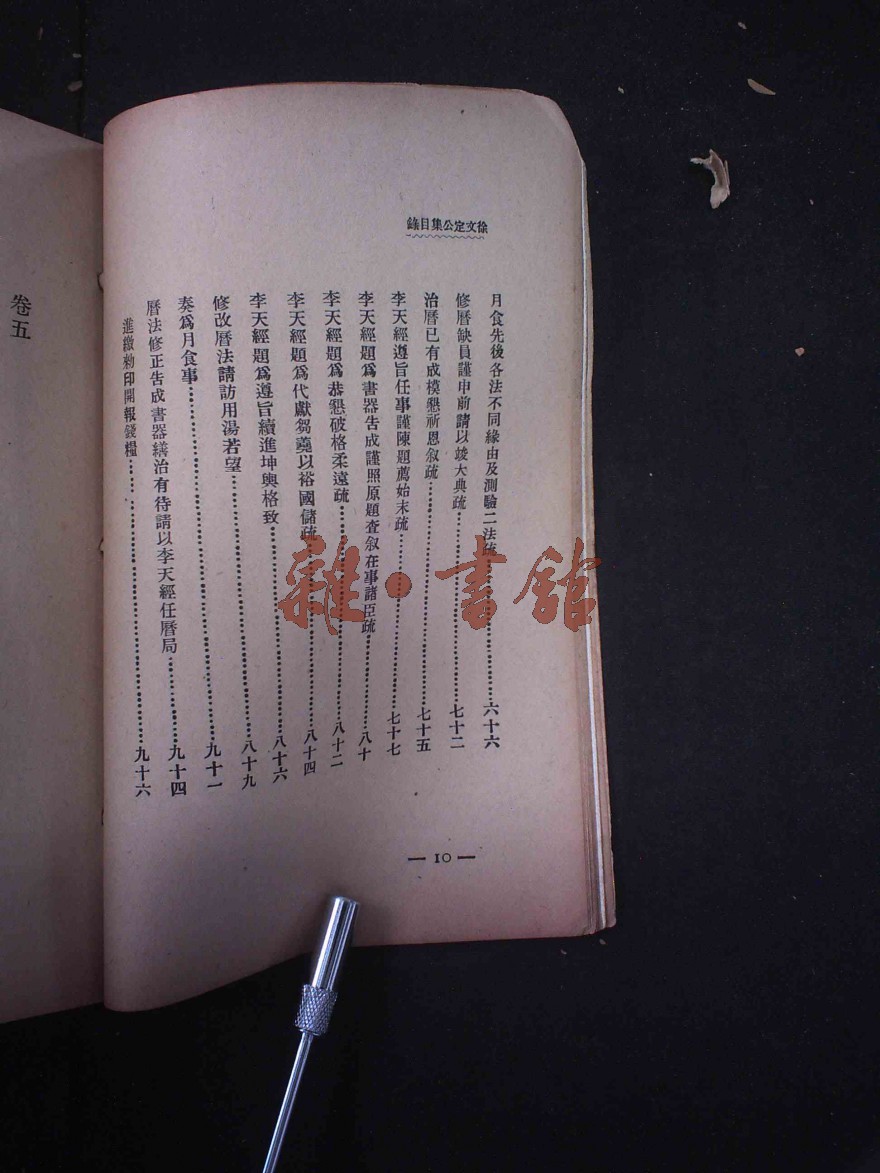 徐文定公集目錄
月食先後各法不同緣由及測驗二法疏……六十六
修曆缺員謹申前請以竣大典疏……七十二
治曆已有成模懇祈恩叙疏……七十五
李天經遵旨任事謹陳題薦始末疏……七十七
李天經題爲書器告成謹照原題查叙在事諸臣疏……八十
李天經題爲恭懇破格柔遠疏……八十二
李天經題爲代獻芻蕘以裕國儲疏……八十四
李天經題爲遵旨續進坤輿格致……八十六
修改曆法請訪用湯若望……八十九
奏爲月食事……九十一
曆法修正告成書器繕治有待請以李天經任曆局……九十四
進繳勑印開報錢糧……九十六
— 10 —
卷五
雜·書館